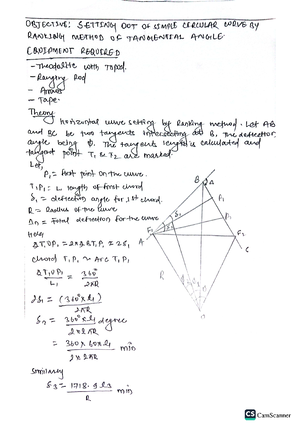 OBJECTIVE: SETTING OUT OF SIMPLE CIRCULAR CURVE BY
RANKING METHOD OF TANGENTIAL ANGLE
EQUIPMENT REQUIRED
- Theodolite with Tripod.
- Ranging Rod
- Arrows
- Tape.
Theory
Horizontal curve setting by Ranking method. Let AB
and BC be two tangents intersecting at B, the deflection
angle being Φ. The tangents length is calculated and
tangent point T1 & T2 are marked.
Let,
P1 = first point on the curve.
T1P1 = L length of first chord
δ1 = deflection angle for 1st chord.
R = Radius of the curve
Δn = Total deflection for the curve
Here
ΔT1OP1 = 2 x ΔBT1P1 = 2δ1
Chord T1P1 ~ Arc T1P1
ΔT1OP1 / L1 = 360° / 2πR
2δ1 = (360° x l1) / 2πR
= 360° x l1 / 2x2πR degree
= 360 x 60 x l1 / 2x2πR min
Similarly
δ3 = 1718.9 l3 / R min
B
Δ
P1
P2
A
C
R
O
CS CamScanner